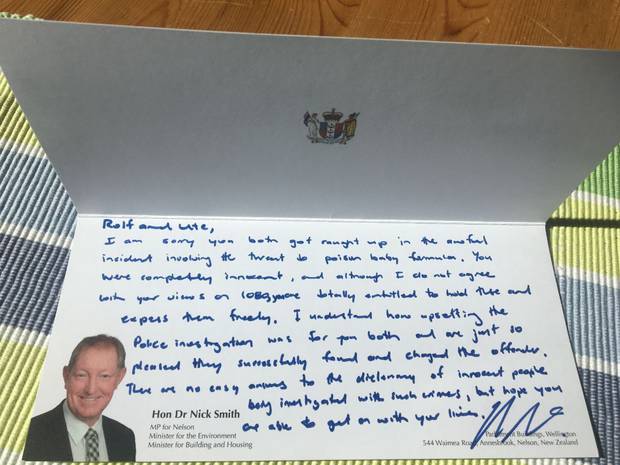 Rolf and Ute,
I am sorry you both got caught up in the awful
incident involving the threat to poison baby formula. You
were completely innocent, and although I do not agree
with your views on 1080 you're totally entitled to hold these and
express them freely. I understand how upsetting the
Police investigation was for you both and are just so
pleased they successfully found and charged the offender.
There are no easy answers to the dictomy of innocent people
being investigated with such crimes, but hope you
are able to get on with your lives.
Hon Dr Nick Smith
MP for Nelson
Minister for the Environment
Minister for Building and Housing
Parliament Buildings, Wellington
544 Waimea Road, Annesbrook, Nelson, New Zealand